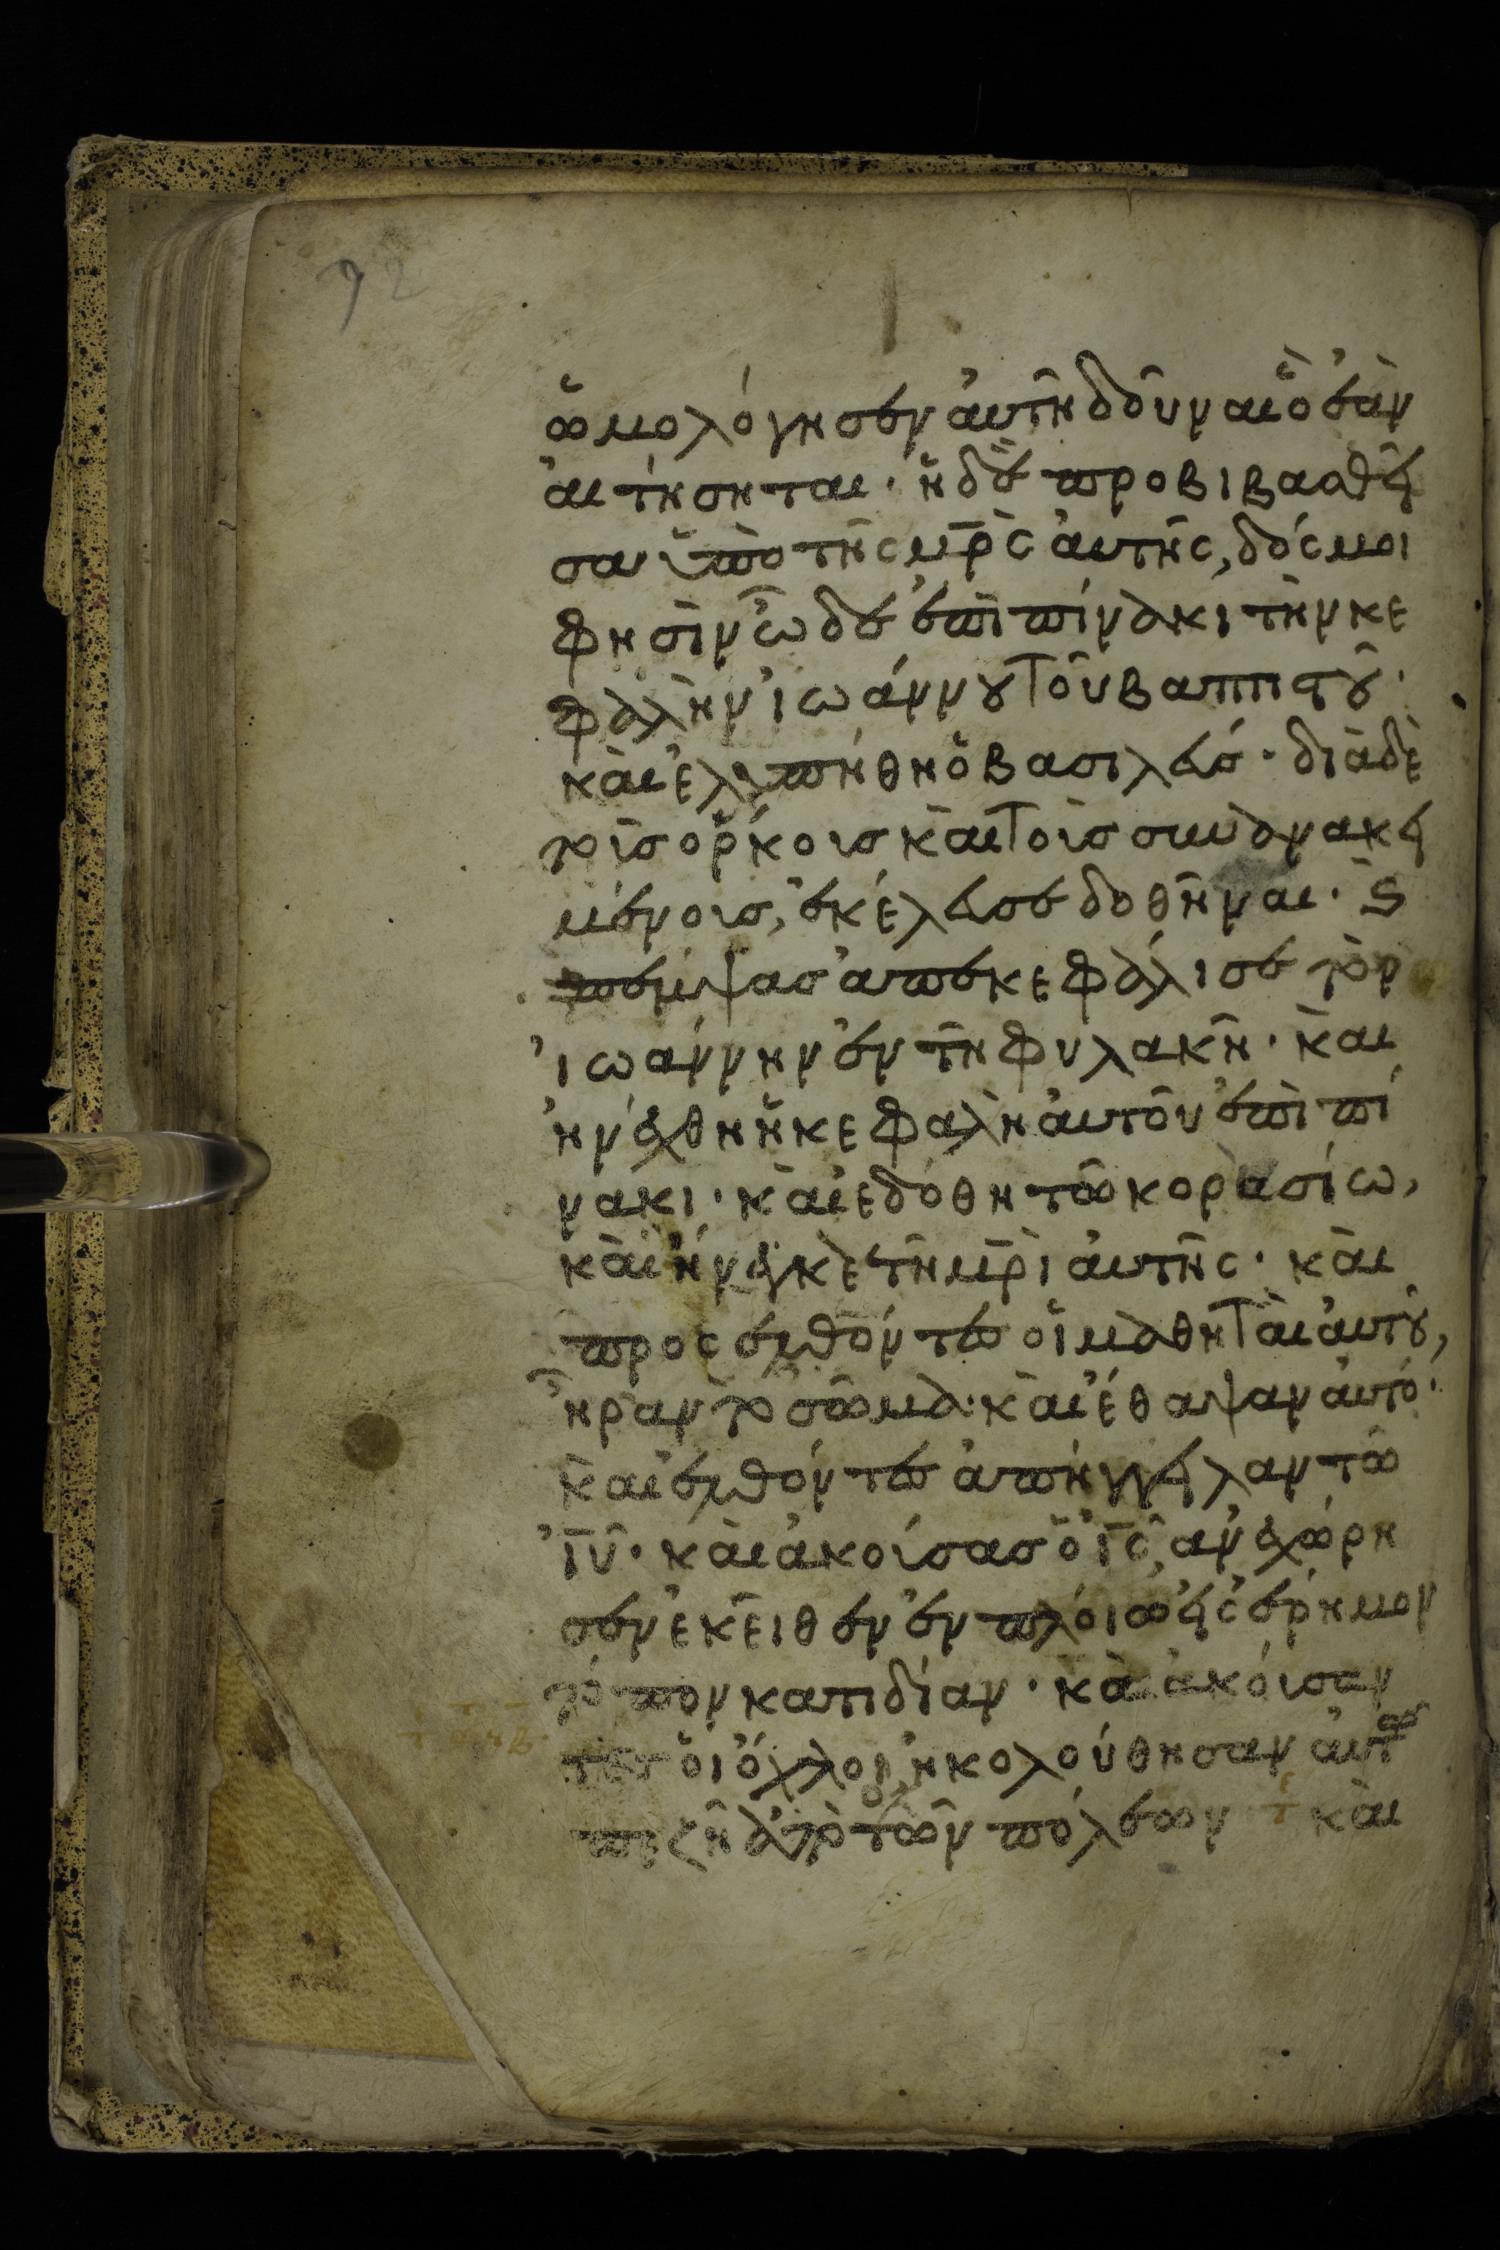 92
ὡμολόγησεν ἀυτῆ δοῦναι ὃ ἐὰν
ἀιτήσηται· ἡ δὲ προβιβασθεῖ
σα ὑπὸ τῆς μρ̅ς ἀυτῆς, δός μοι
φησὶν ὧδε ἐπὶ πίνακι τὴν κε
φαλὴν ἰωάννου τοῦ βαπτιστοῦ·
κὰι ἐλυπήθη ὁ βασιλεύς· διὰ δὲ
τοὺς ὅρκους κὰι τοὺς συνανακει
μένους, ἐκέλευσε δοθῆναι· ϗ
πέμψας ἀπεκεφάλισε τὸν
ἰωάννην ἐν τῆ φυλακῆ· κὰι
ἠνέχθη ἡ κεφαλὴ ἀυτοῦ ἐπὶ πί
νακι· κὰι ἐδόθη τῶ κορασίω,
κὰι ἤνεγκε τῆ μρ̅ὶ ἀυτῆς· κὰι
προσελθόντες οἱ μαθηταὶ ἀυτοῦ,
ἦραν τὸ σῶμα· κὰι ἔθαψαν ἀυτό·
κὰι ἐλθόντες ἀπήγγειλαν τῶ
ἰ̅υ̅· κὰι ἀκούσας ὁ ἰ̅ς̅, ἀνεχώρη
σεν ἐκεῖθεν ἐν πλοίω εἰς ἔρημον
τόπον κατιδίαν· κὰι ἀκούσαν
τες οἱ ὄχλοι ἠκολούθησαν ἀυτῶ
πεζῆ ἀπὸ τῶν πόλεων κὰι